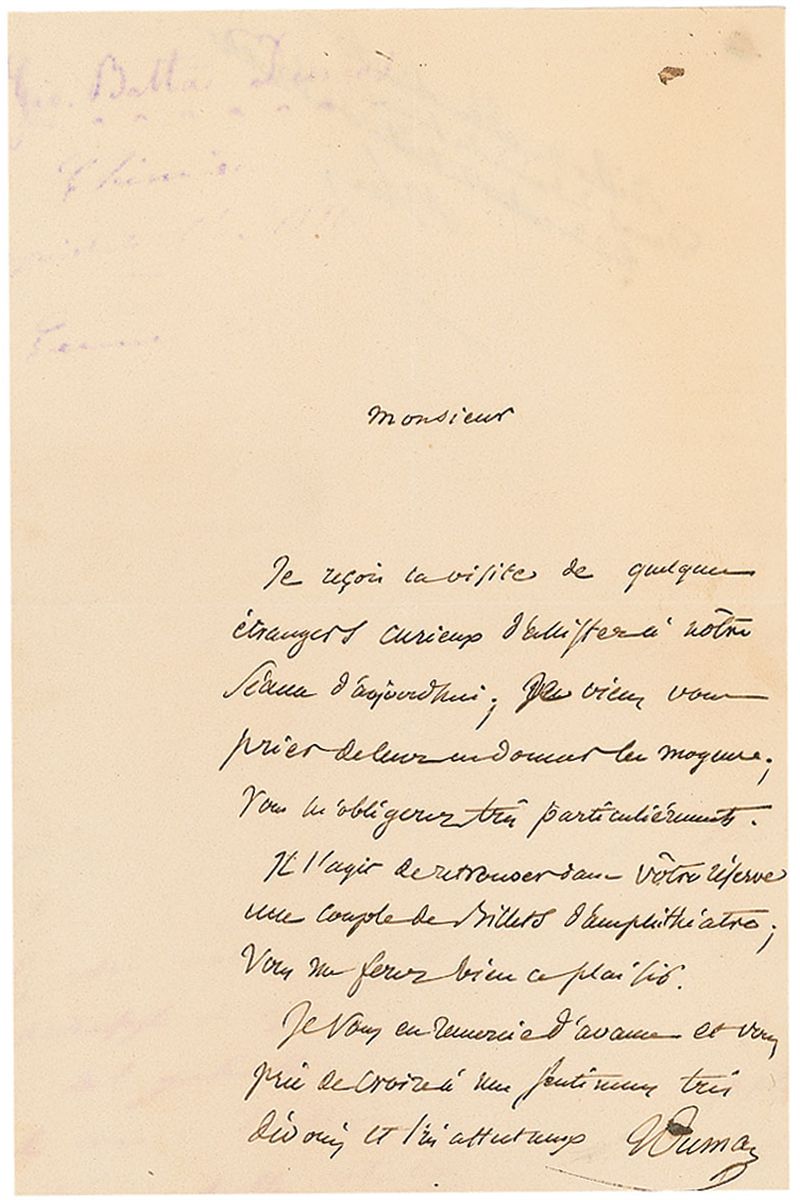 Monsieur
Je reçois la visite de quelques
étrangers curieux d'assister à nôtre
Séance d'aujourdhui; Je viens vous
prier de leur en donner les moyens;
Vous m'obligerez très particulièrement.
Il s'agit de retrouver dans vôtre réserve
une couple de Billets d'amphithéatre;
Vous me ferez bien ce plaisir.
Je Vous en remercie d'avance et vous
prie de croire à mes sentimens très
dévoués et très affectueux
Dumas